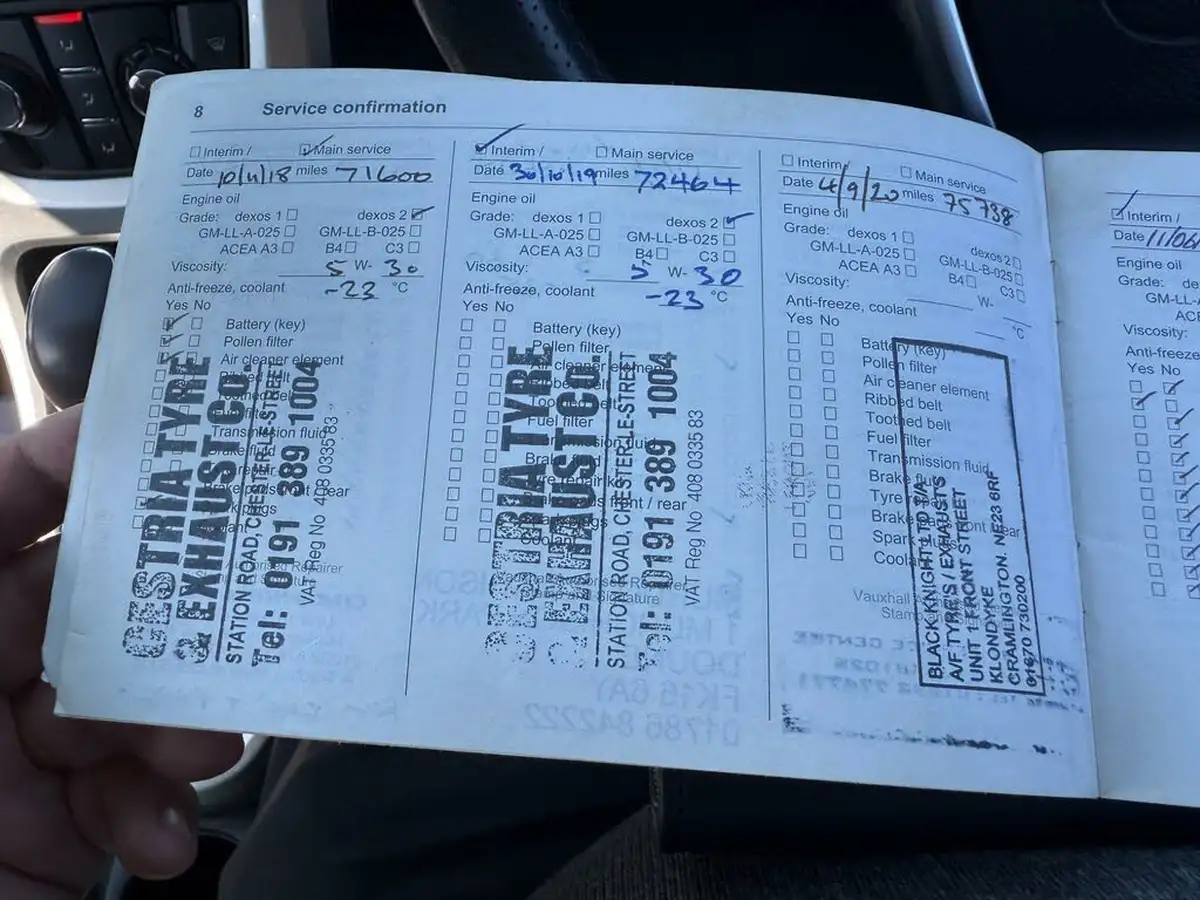 8 Service confirmation
Interim / Main service
Date 10/4/18 miles 71600
Engine oil
Grade: dexos 1 dexos 2
GM-LL-A-025 GM-LL-B-025
ACEA A3 B4 C3
Viscosity: 5 W- 30
Anti-freeze, coolant -23 °C
Yes No
Battery (key)
Pollen filter
Air cleaner element
Ribbed belt
Toothed belt
Fuel filter
Transmission fluid
Brake fluid
CESTRIA TYRE
& EXHAUST CO.
STATION ROAD, CHESTER-LE-STREET
Tel: 0191 389 1004
VAT Reg No 408 0335 83
Interim / Main service
Date 30/10/19 miles 72464
Engine oil
Grade: dexos 1 dexos 2
GM-LL-A-025 GM-LL-B-025
ACEA A3 B4 C3
Viscosity: 5 W- 30
Anti-freeze, coolant -23 °C
Yes No
Battery (key)
Pollen filter
Air cleaner element
Ribbed belt
Toothed belt
Fuel filter
Transmission fluid
CESTRIA TYRE
& EXHAUST CO.
STATION ROAD, CHESTER-LE-STREET
Tel: 0191 389 1004
VAT Reg No 408 0335 83
Interim/ Main service
Date 4/9/20 miles 75738
Engine oil
Grade: dexos 1 dexos 2
GM-LL-A-025 GM-LL-B-025
ACEA A3 B4 C3
Viscosity: W-
Anti-freeze, coolant °C
Yes No
Battery (key)
Pollen filter
Air cleaner element
Ribbed belt
Toothed belt
Fuel filter
Transmission fluid
Brake fluid
Tyre
Brake
Spark
Coolant
Vauxhall
BLACK KNIGHT LTD T/A
A/F TYRE'S / EXHAUSTS
UNIT 1 FRONT STREET
KLONDYKE
CRAMLINGTON. NE23 6RF
01670 730200
Interim /
Date 11/06
Engine oil
Grade: de
GM-LL-A
ACEA
Viscosity:
Anti-freeze
Yes No